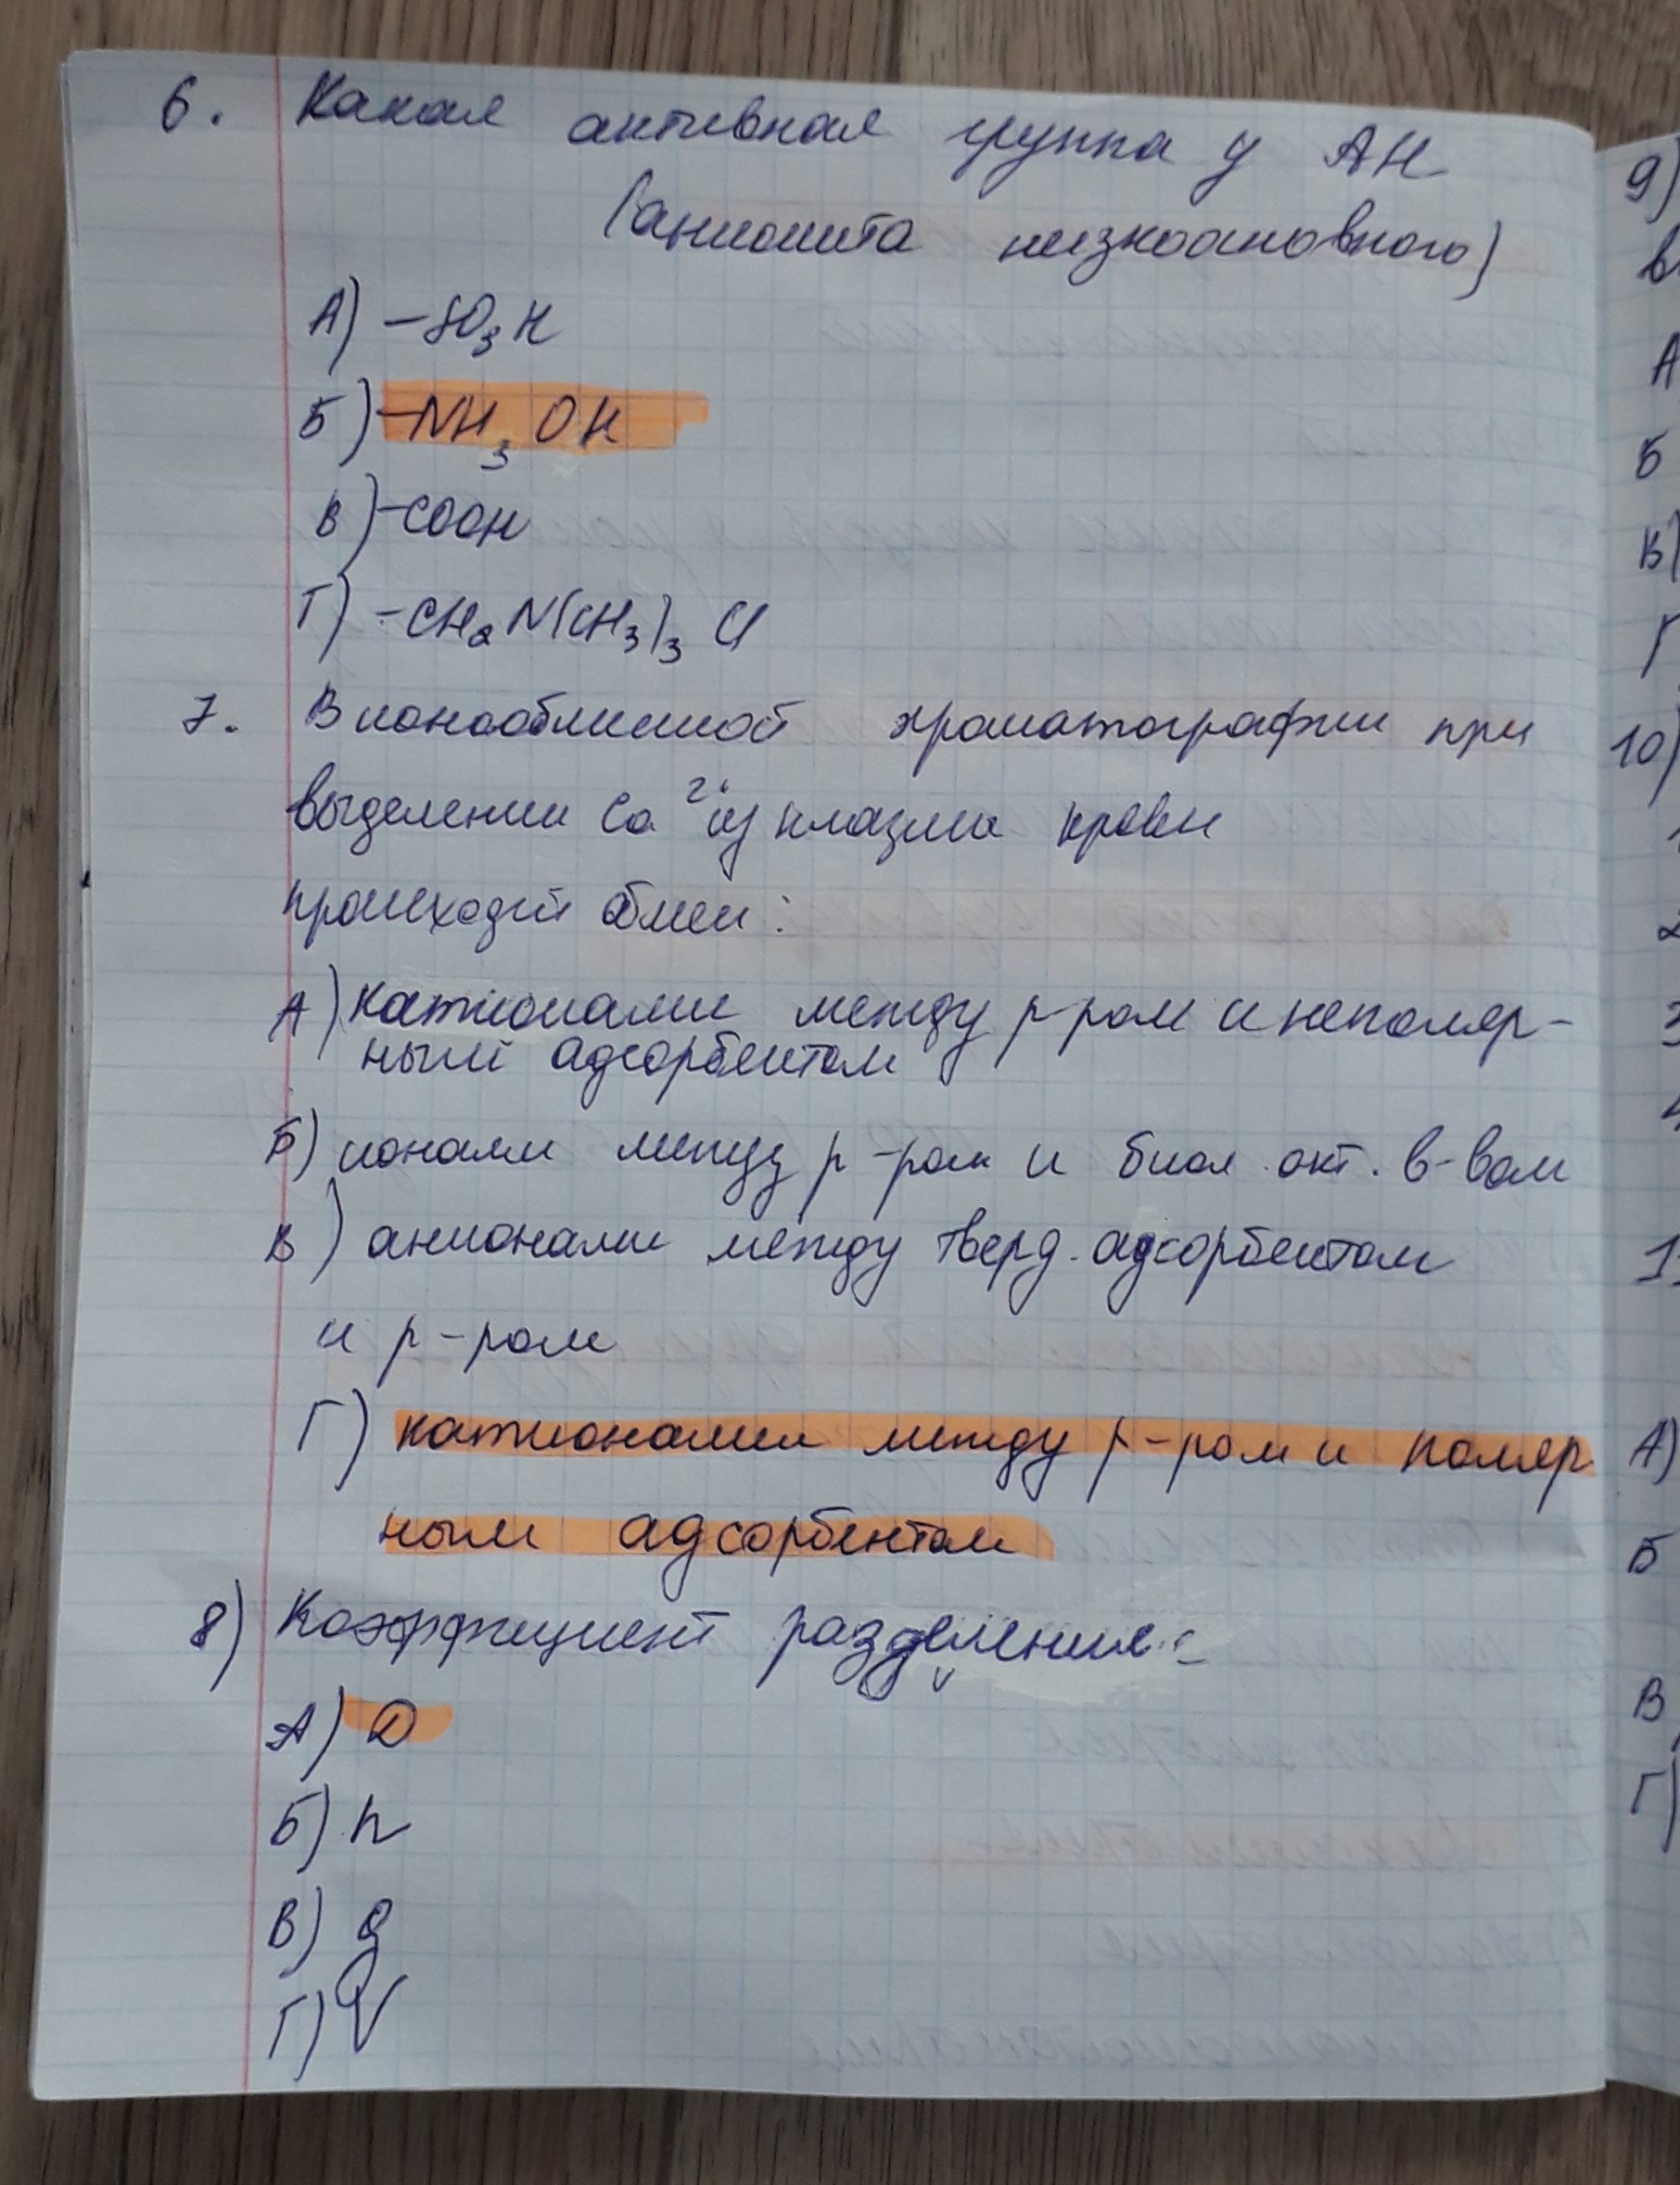 6. Какая активная группа у АН
(анионита низкоосновного)
А) –SO3H
Б) –NH3OH
В) –COOH
Г) –CH2N(CH3)3Cl
7. В ионообменной хроматографии при
выделении Ca2+ из плазмы крови
происходит обмен:
А) катионами между р-ром и неполяр-
ным адсорбентом
Б) ионами между р-ром и биол. акт. в-вом
В) анионами между тверд. адсорбентом
и р-ром
Г) катионами между р-ром и поляр
ным адсорбентом
8) Коэффициент разделения:
А) D
Б) h
В)
Г)
9)
в
А
Б
В)
Г
10)
А)
Б
В
Г)